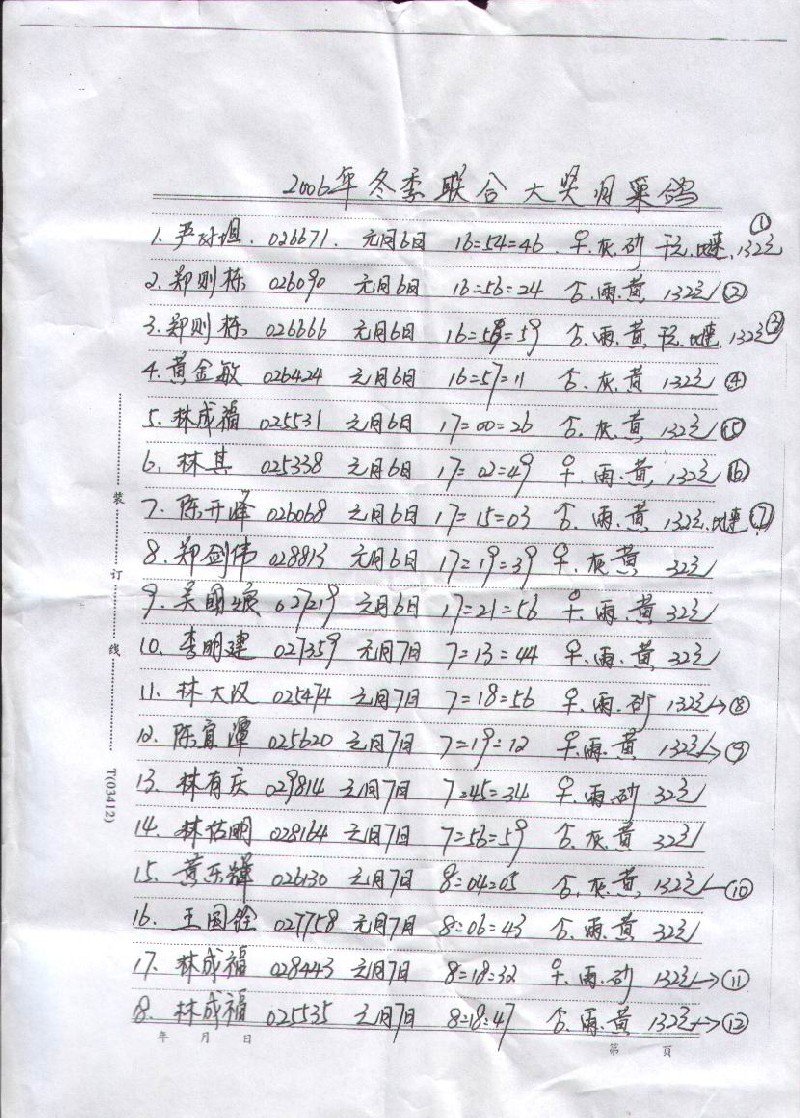 2006年冬季联合大奖归巢鸽
1. 严 026671. 元月6日 16=54=46. ♀.灰.砂 132元 ①
2. 郑则栋 026090 元月6日 16=56=24 ♂.雨.黄 132元 ②
3. 郑则栋 026666 元月6日 16=58=59 ♂.雨.黄 132元 ③
4. 黄金敏 026424 元月6日 16=57=11 ♂.灰.黄 132元 ④
5. 林成福 025531 元月6日 17=00=26 ♂.灰.黄 132元 ⑤
6. 林其 025338 元月6日 17=02=49 ♀.雨.黄 132元 ⑥
7. 陈开峰 026068 元月6日 17=15=03 ♂.雨.黄 132元 ⑦
8. 郑剑伟 028813 元月6日 17=19=39 ♀.灰黄 32元
9. 吴国 027219 元月6日 17=21=56 ♀.雨.黄 32元
10. 李明建 027359 元月7日 7=13=44 ♀.雨.黄 32元
11. 林大汉 025474 元月7日 7=18=56 ♀.雨.砂 132元→⑧
12. 陈宜潭 025620 元月7日 7=19=12 ♀.雨.黄 132元→⑨
13. 林有庆 029814 元月7日 7=45=34 ♀.雨.砂 32元
14. 林枯明 028164 元月7日 7=56=59 ♂.灰黄 32元
15. 黄乐辉 026130 元月7日 8=04=05 ♂.灰.黄 132元—⑩
16. 王国铨 027758 元月7日 8=06=43 ♂.雨.黄 32元
17. 林成福 028443 元月7日 8=18=32 ♀.雨.砂 132元→⑪
8. 林成福 025535 元月7日 8=18=47 ♂.雨.黄 132元→⑫
装
订
线
T(03412)
年 月 日
第 页